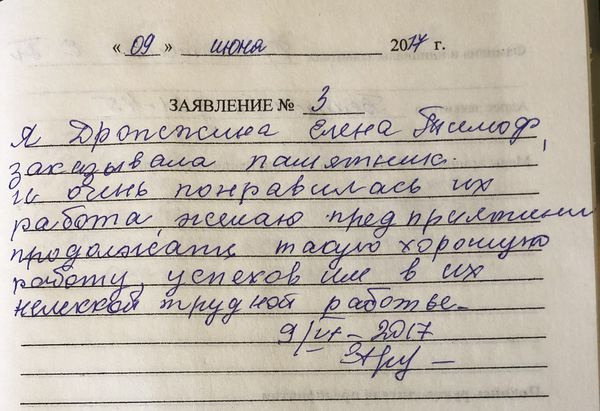 « 09 » июня 2017 г.
ЗАЯВЛЕНИЕ № 3
Я Дрожжина Елена
заказывала памятник.
и очень понравилась их
работа, желаю предприятии
продолжать такую хорошую
работу, успехов им в их
нелегкой трудной работе
9/VI - 2017